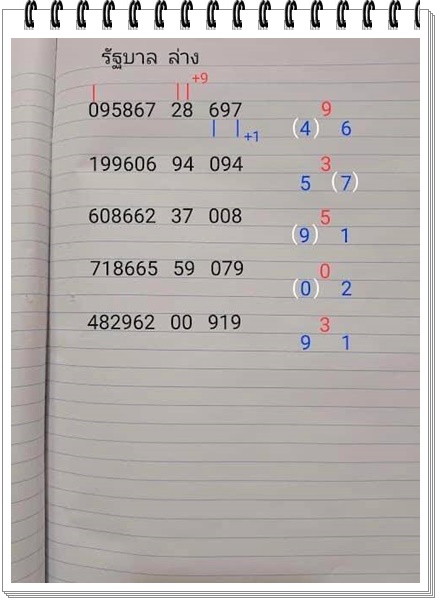 รัฐบาล ล่าง
+9
095867 28 697 9
+1 (4) 6
199606 94 094 3
5 (7)
608662 37 008 5
(9) 1
718665 59 079 0
(0) 2
482962 00 919 3
9 1